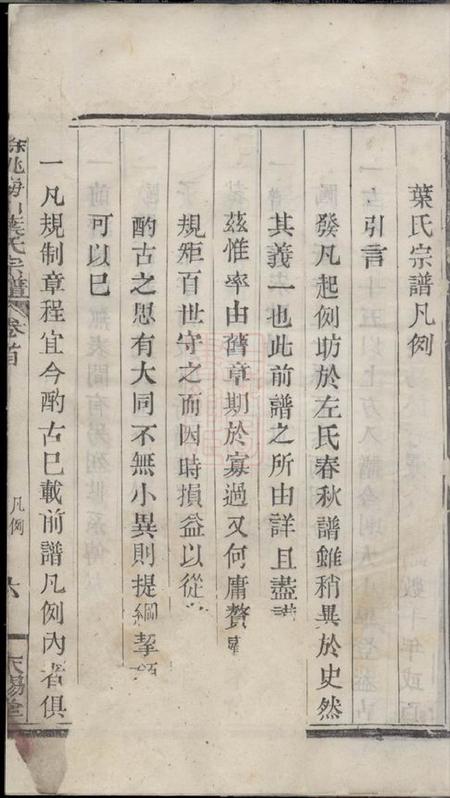 葉氏宗譜凡例
引言
發凡起例昉於左氏春秋譜雖稍異於史然
其義一也此前譜之所由詳且盡
茲惟率由舊章期於寡過又何庸贅
規矩百世守之而因時損益以從
酌古之思有大同不無小異則提綱挈領
可以已
一凡規制章程宜今酌古已載前譜凡例內者俱
餘姚海山葉氏宗譜 卷首 凡例 六 天錫堂